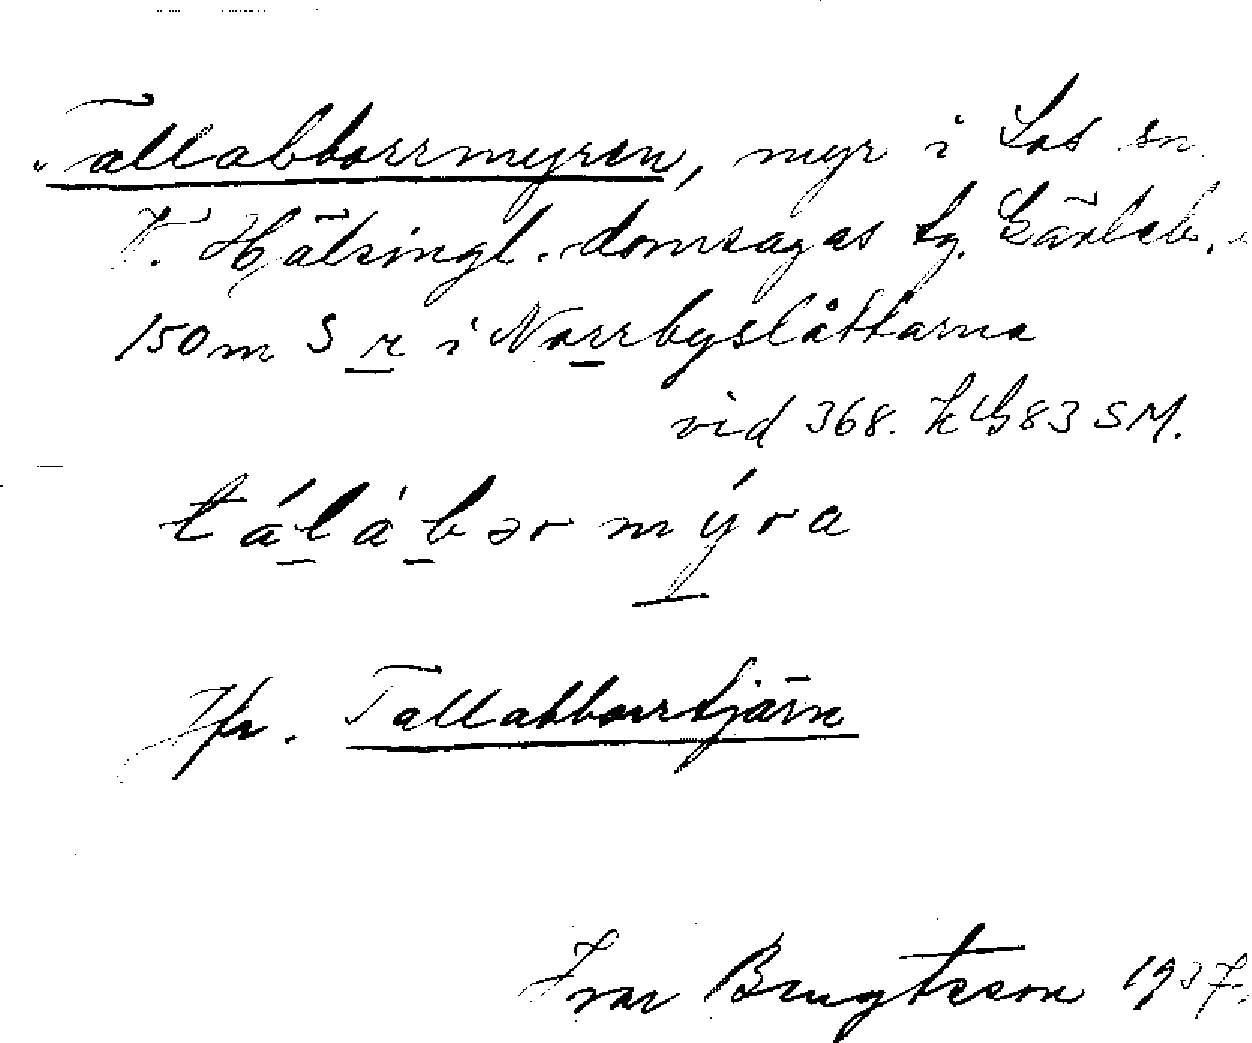 Tallabborrmyren, myr i Los sn
V. Hälsingl. domsagas tg. Gävleb.
150 m S r i Norrbyslåttarna
vid 368. kG 83 SM.
tálábər mýra
Jfr. Tallabborrtjärn
Ivar Bengtsson 1937.